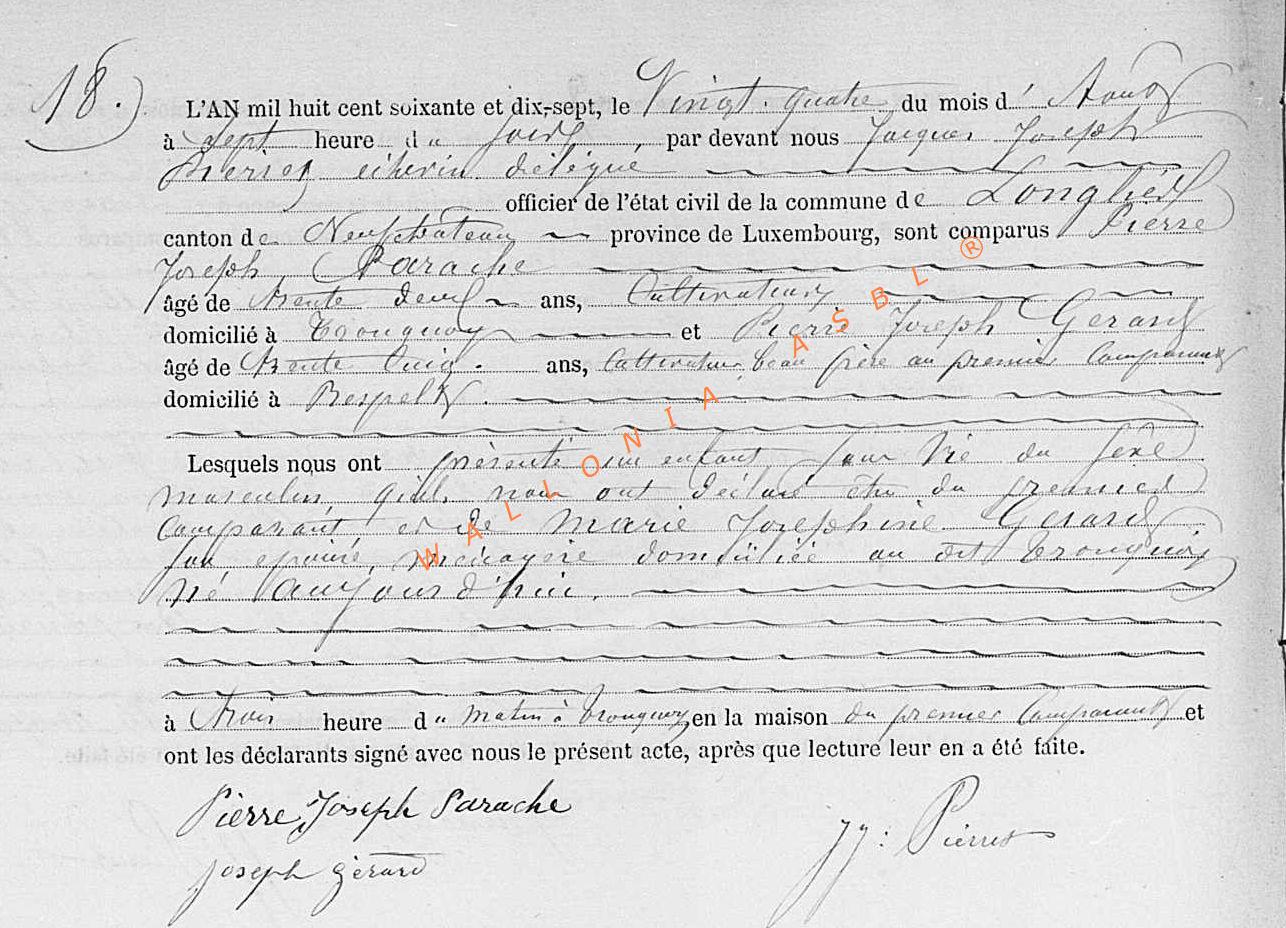 18.)
L'AN mil huit cent soixante et dix-sept, le Vingt-quatre du mois d' Août
à Sept heure du soir, par devant nous Jacques Joseph
Pierret échevin délégué
officier de l'état civil de la commune de Longlier
canton de Neufchâteau province de Luxembourg, sont comparus Pierre
Joseph Parache
âgé de trente deux ans, Cultivateur
domicilié à Tronquoy et Pierre Joseph Gerard
âgé de trente Cinq ans, Cultivateur, beau frère au premier Comparant
domicilié à Respelt
Lesquels nous ont présenté un enfant, sans Vie du Sexe
masculin, qu'ils nous ont déclaré être du premier
Comparant et de Marie Josephine Gerard
son épouse, ménagère domiciliée au dit Tronquoy
Né aujourd'hui.
à trois heure du matin à Tronquoy, en la maison du premier Comparant et
ont les déclarants signé avec nous le présent acte, après que lecture leur en a été faite.
Pierre Joseph Parache
JJ: Pierret
Joseph Gérard
WALLONIA ASBL ®